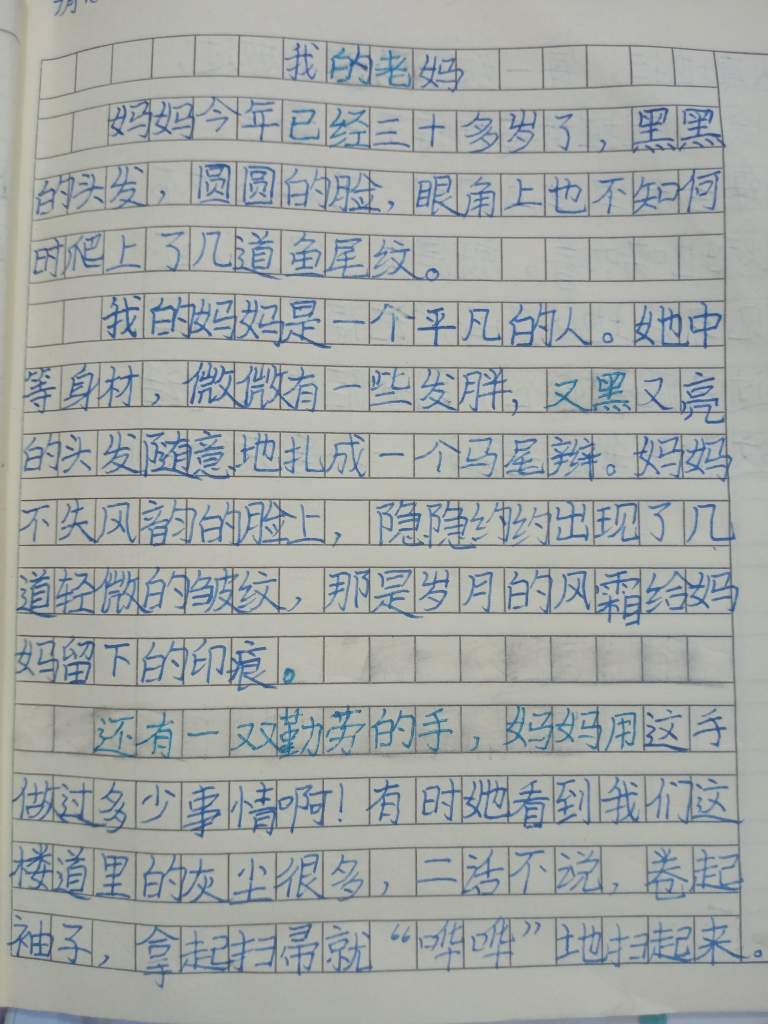 我的老妈
妈妈今年已经三十多岁了，黑黑
的头发，圆圆的脸，眼角上也不知何
时爬上了几道鱼尾纹。
我的妈妈是一个平凡的人。她中
等身材，微微有一些发胖，又黑又亮
的头发随意地扎成一个马尾辫。妈妈
不失风韵的脸上，隐隐约约出现了几
道轻微的皱纹，那是岁月的风霜给妈
妈留下的印痕。
还有一双勤劳的手，妈妈用这手
做过多少事情啊！有时她看到我们这
楼道里的灰尘很多，二话不说，卷起
袖子，拿起扫帚就“哗哗”地扫起来。